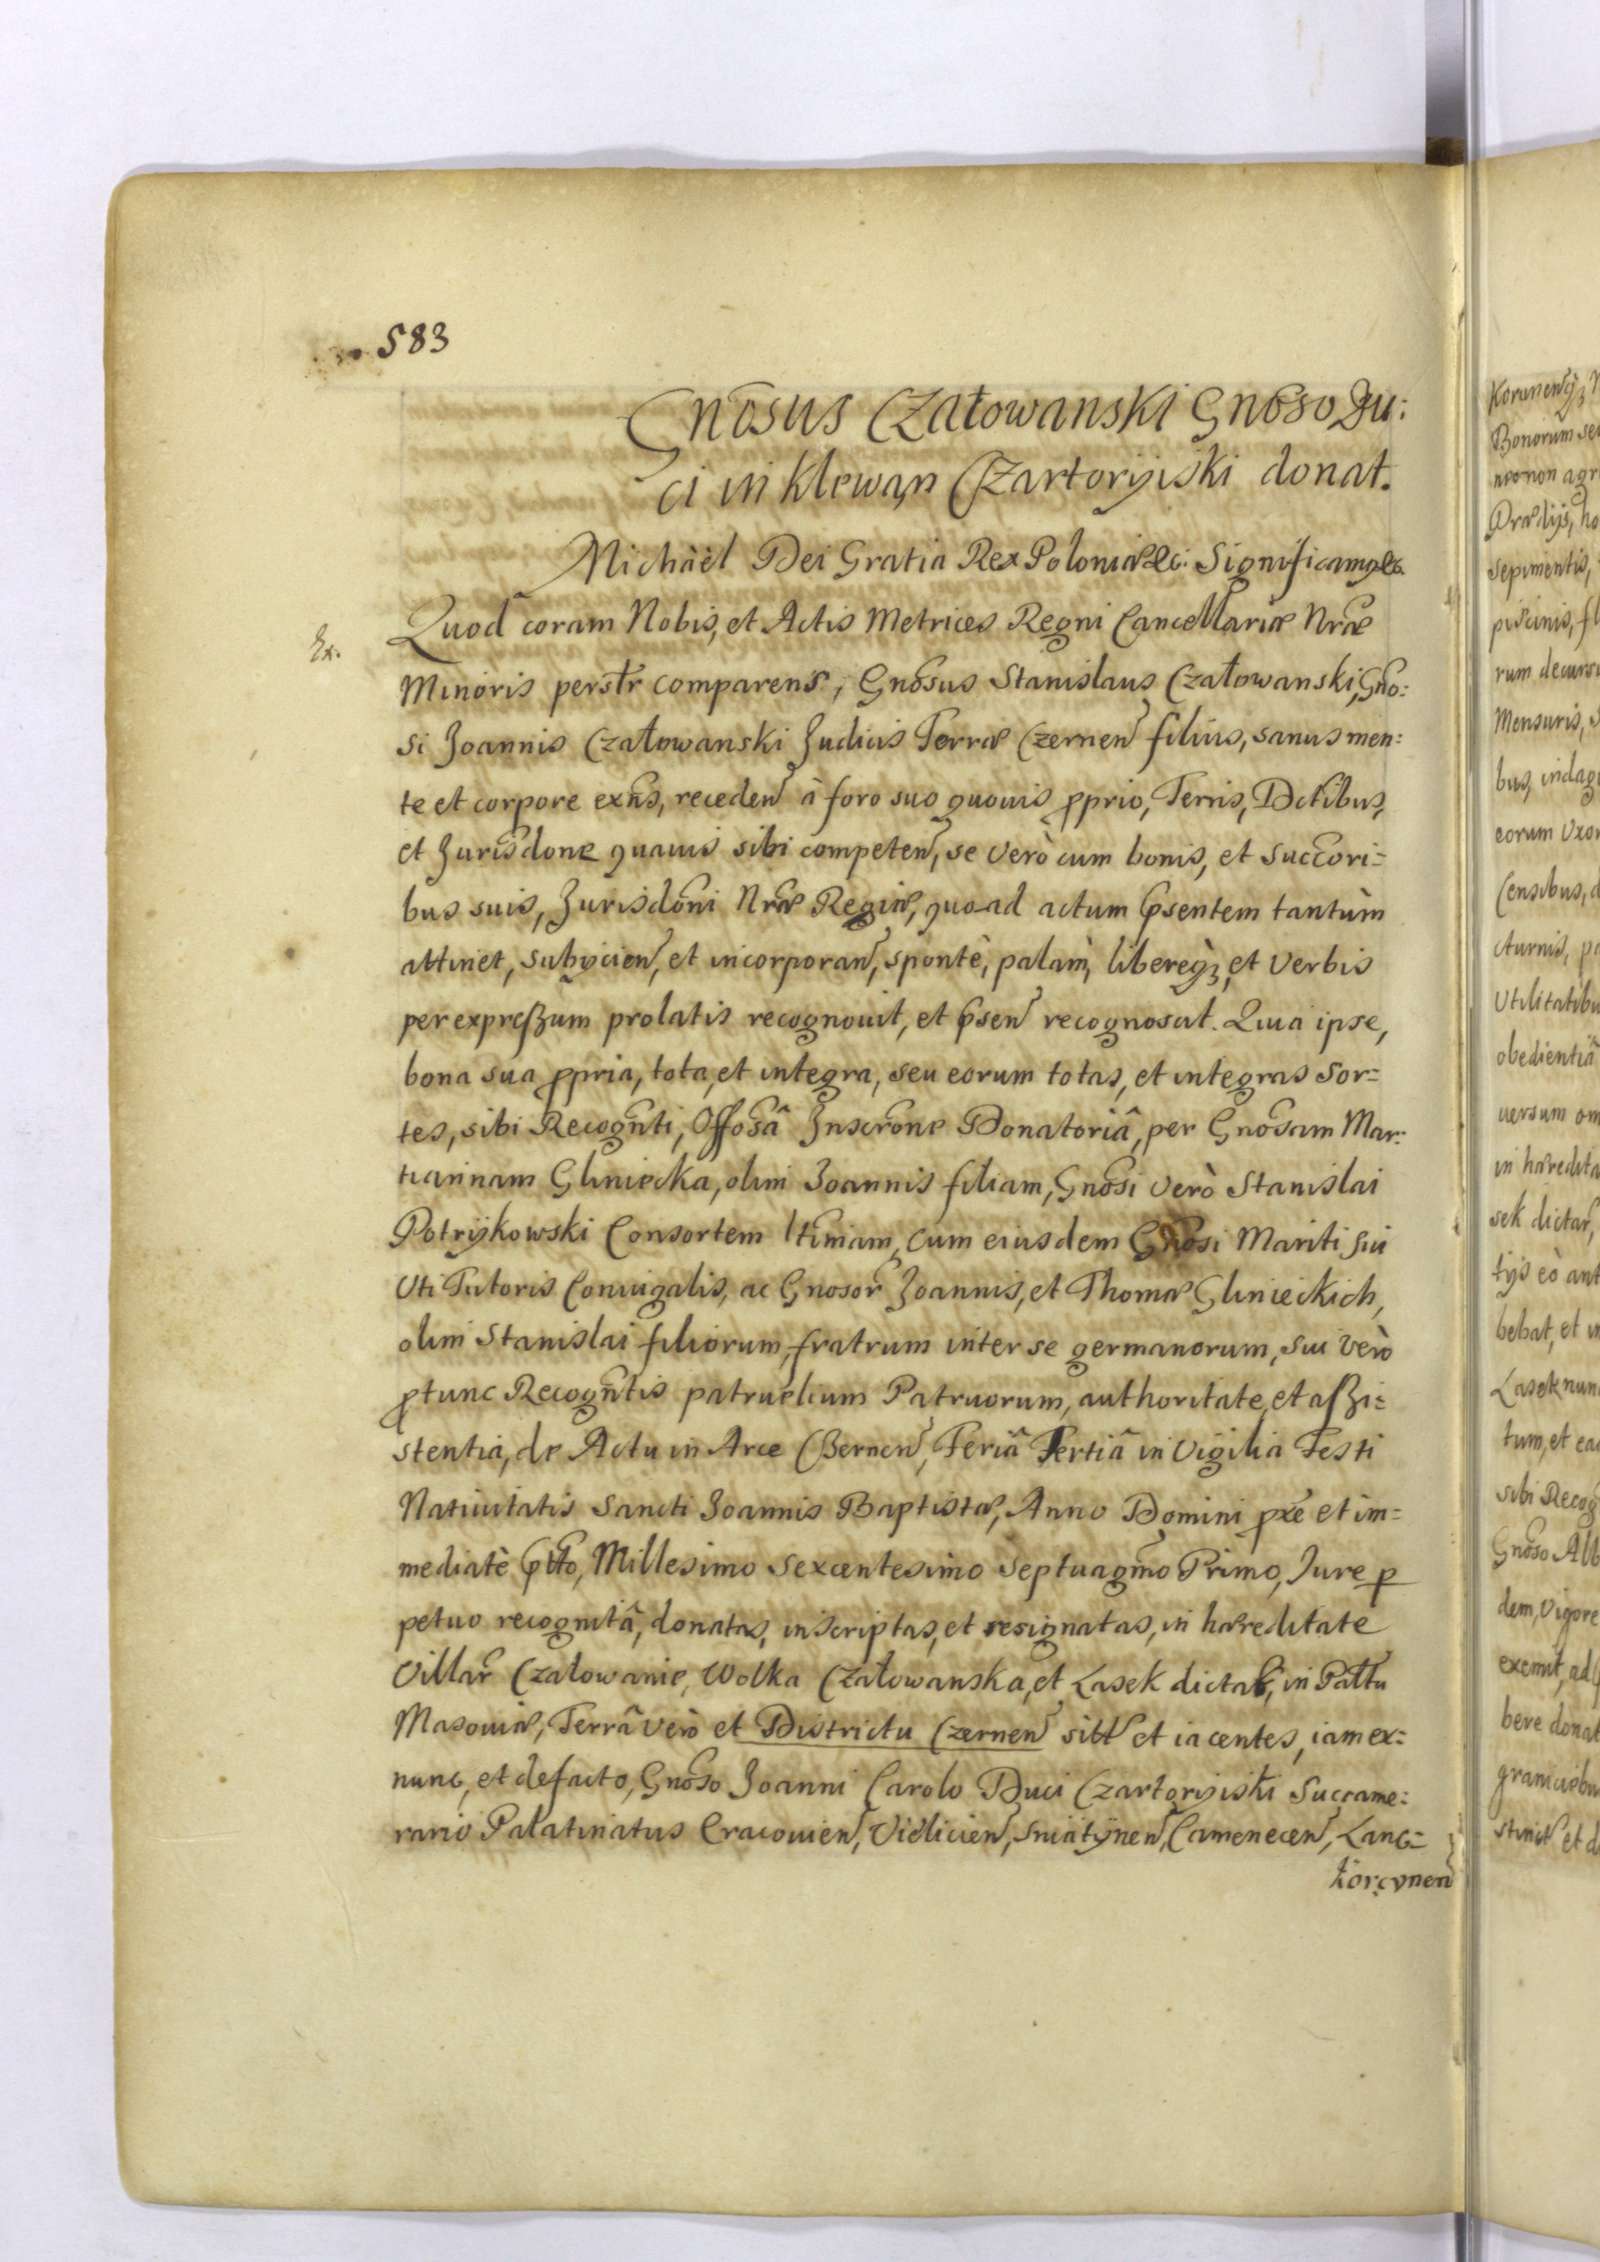 583
Gnosus Czałowanski Gnoso Du:
ci in Klewan Czartoryiski donat.
Michäel Dei Gratia Rex Poloniæ &c. Significamq &c.
Ex.
Quod coram Nobis, et Actis Metrices Regni Cancellariæ Nræ
Minoris perstr comparens, Gnosus Stanislaus Czałowanski, Gno:
si Joannis Czałowanski Judicis Terræ Czernen filius, sanus men:
te et corpore exns, receden à foro suo quouis pprio, Terris, Dctibus,
et Jurisdone quauis sibi competen, se verò cum bonis, et succori=
bus suis, Jurisdoni Nræ Regiæ, quo-ad actum psentem tantùm
attinet, subycien, et incorporan, spontè, palàm, libereq3, et verbis
per expressum prolatis recognouit, et psen recognoscit. Quia ipse,
bona sua ppria, tota, et integra, seu eorum totas, et integras Sor=
tes, sibi Recognti, Offosâ Inscrone Donatoriâ, per Gnosam Mar:
tiannam Gliniecka, olim Joannis filiam, Gnosi verò Stanislai
Potrykowski Consortem ltimam, cum eiusdem Gnosi Mariti sui
Uti Tutoris Coniugalis, ac Gnosor Joannis, et Thomæ Glinieckich,
olim Stanislai filiorum, fratrum inter se germanorum, sui verò
ptunc Recogntis patruelium Patruorum, authoritate, et assi=
stentia, de Actu in Arce Czernen, Feriâ Tertiâ in Vigilia Festi
Natiuitatis Sancti Joannis Baptistæ, Anno Domini pxe et im=
mediatè ptto, Millesimo Sexcentesimo Septuagmo Primo, Jure p
petuo recognitâ, donatas, inscriptas, et resignatas, in hæreditate
Villar Czałowanie, Wolka Czałowanska, et Lasek dictar, in Paltu
Masouiæ, Terrâ verò et Districtu Czernen sitt et iacentes, iam ex:
nunc, et defacto, Gnoso Joanni Carolo Duci Czartoryiski Succame:
rario Palatinatus Cracouien, Vielicien, Sniatynen, Camenecen, Lanc=
korcynen
Bonorum
non agr
Prædijs, ho
sepimentis,
piscinis, fl
rum decursu
Mensuris, s
bus, indagi
eorum Uxor
Censibus, d
cturnis, pa
Utilitatibu
obedientiâ
uersum om
in hæredita
sek dictar,
tijs eò ant
bebat, et in
Lasek nun
tum, et ea
sibi Recog
Gnoso Alb
dem, Vigore
exemit, ad
bere donat
graniciebu
et d